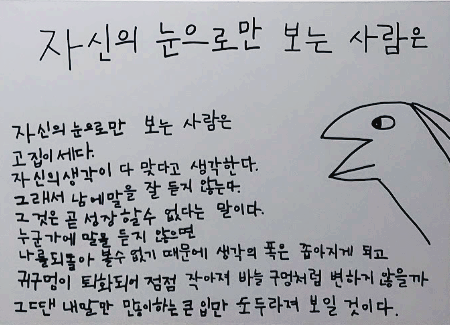 자신의 눈으로만 보는 사람은
자신의 눈으로만 보는 사람은
고집이 세다.
자신의 생각이 다 맞다고 생각한다.
그래서 남에 말을 잘 듣지 않는다.
그것은 곧 성장할수 없다는 말이다.
누군가에 말을 듣지 않으면
나를 되돌아 볼수 없기 때문에 생각의 폭은 좁아지게 되고
귀구멍이 퇴화되어 점점 작아져 바늘 구멍처럼 변하게 않을까
그때엔 내말만 만들이하는 큰 입만 도두라져 보일 것이다.